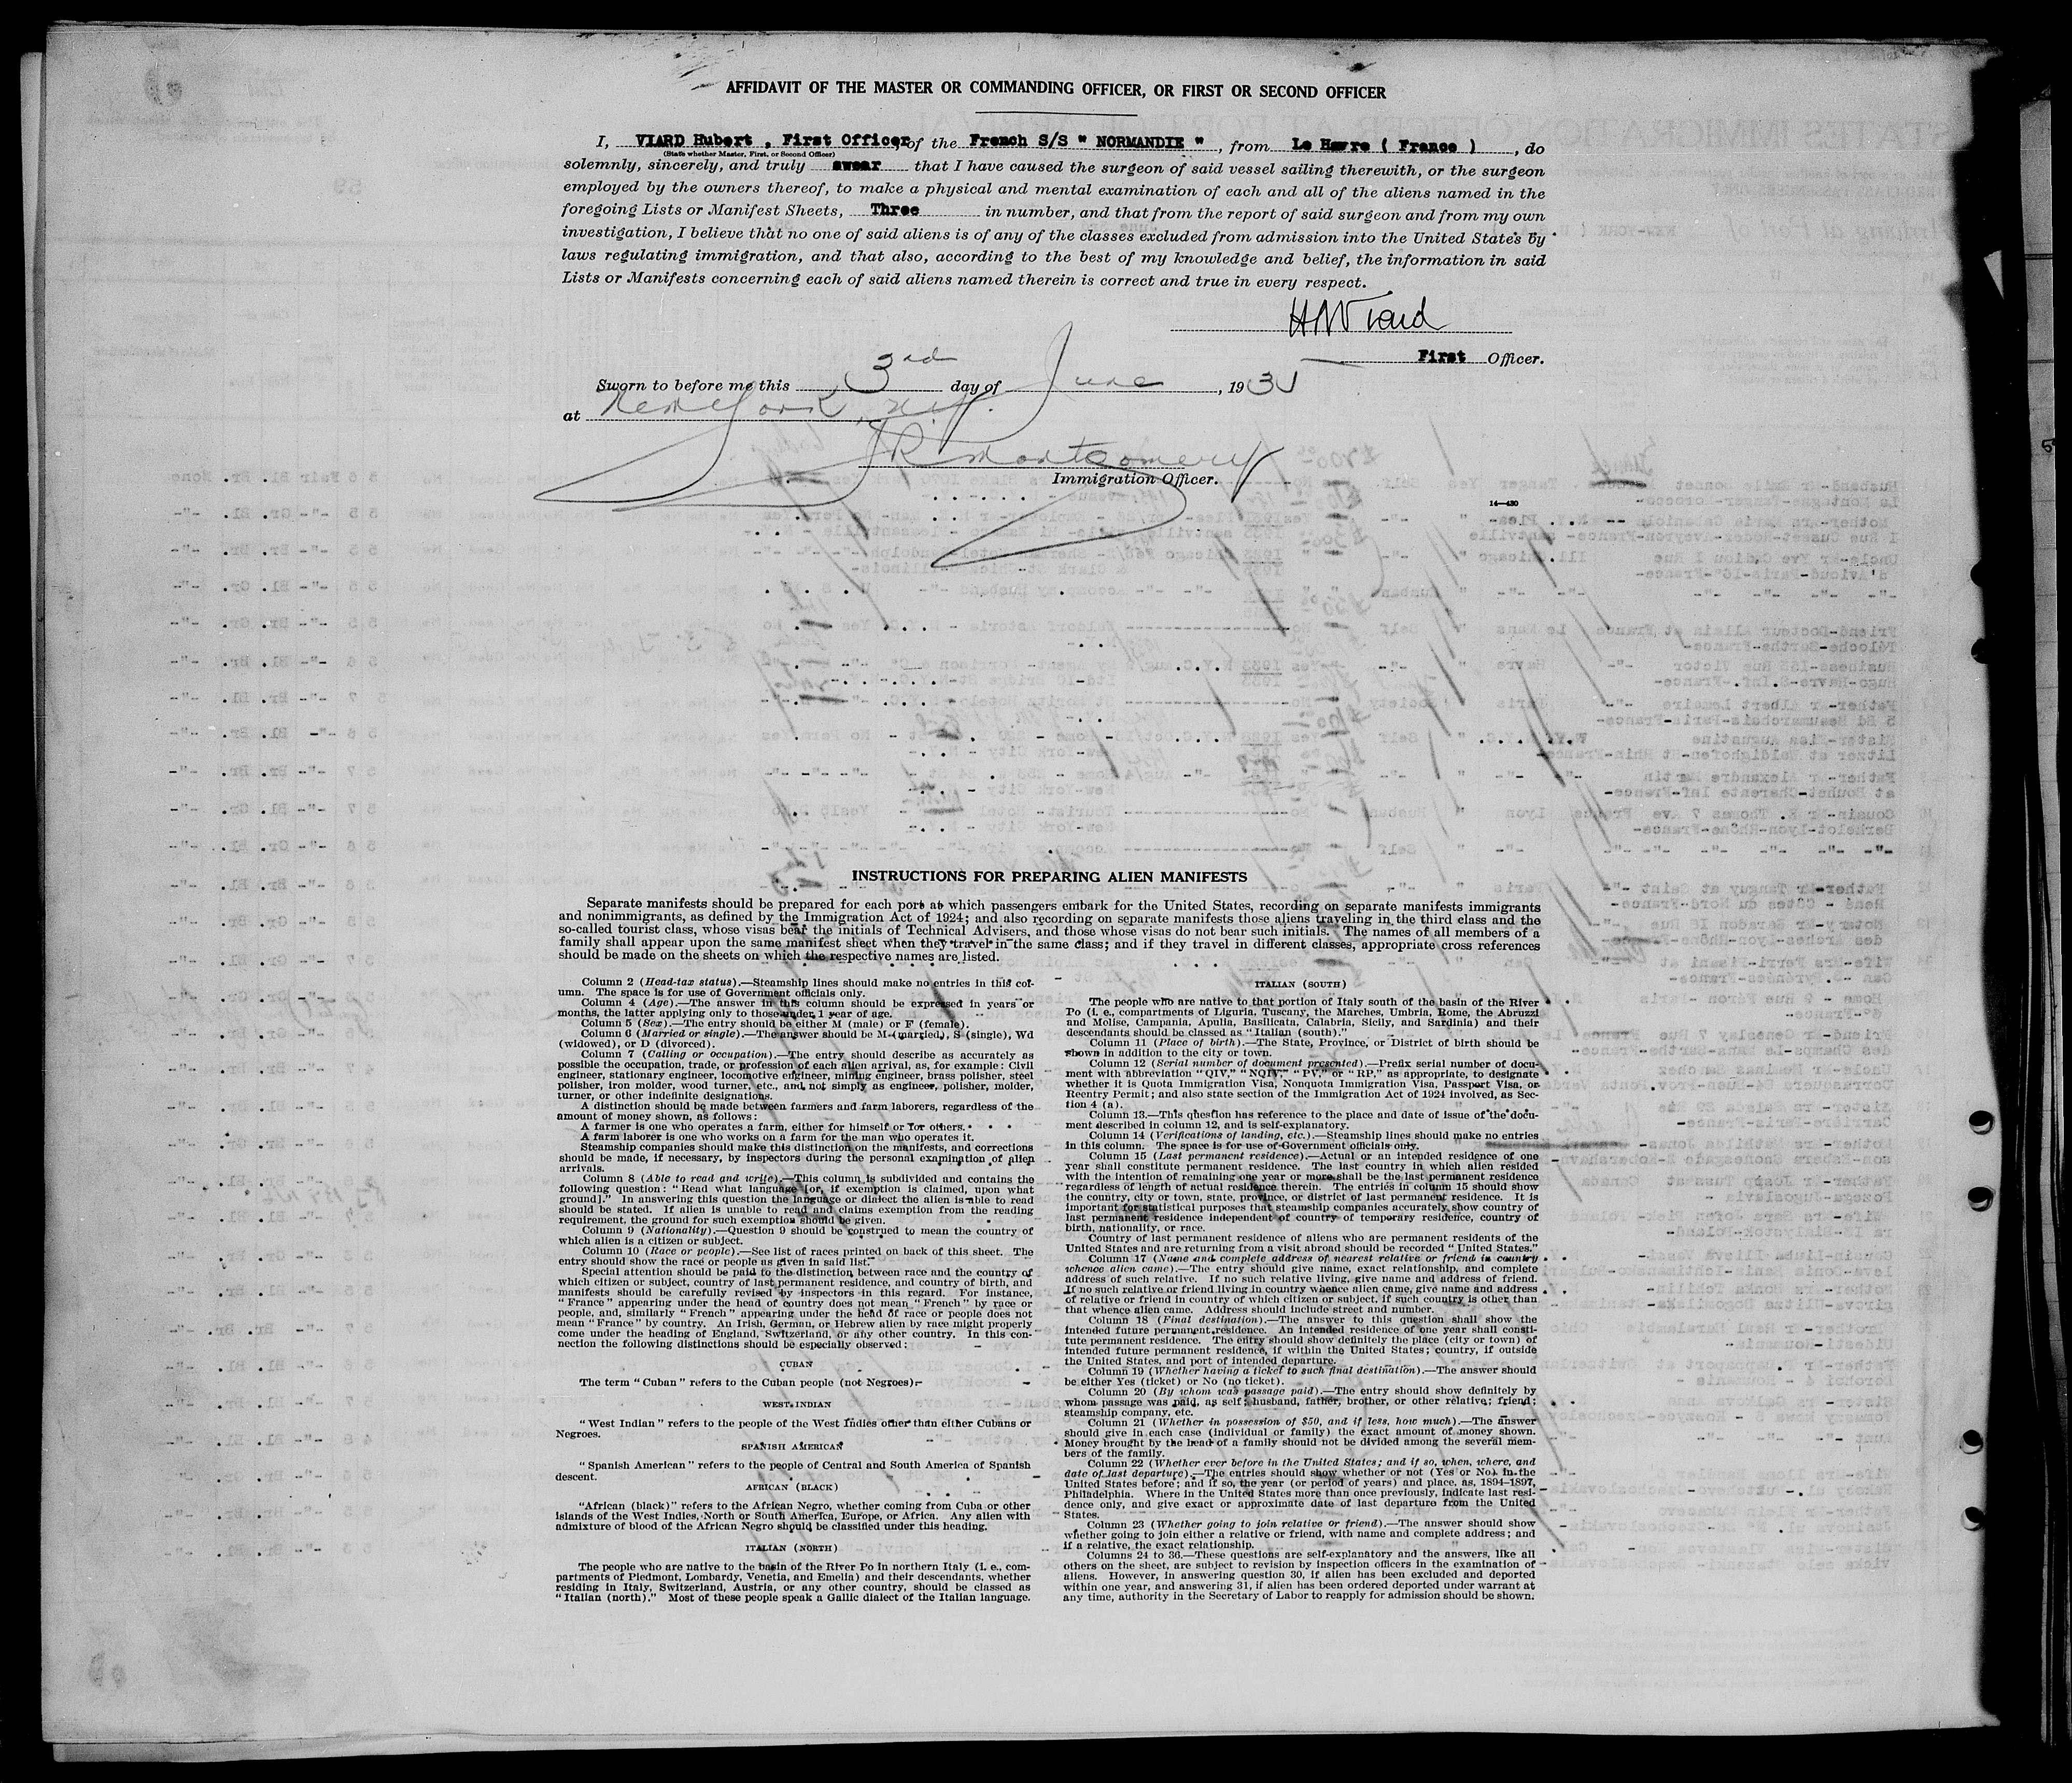 AFFIDAVIT OF THE MASTER OR COMMANDING OFFICER, OR FIRST OR SECOND OFFICER
I, VIARD Hubert , First Officer of the French S/S " NORMANDIE " , from Le Havre ( France ) , do
(State whether Master, First, or Second Officer)
solemnly, sincerely, and truly swear that I have caused the surgeon of said vessel sailing therewith, or the surgeon
employed by the owners thereof, to make a physical and mental examination of each and all of the aliens named in the
foregoing Lists or Manifest Sheets, Three in number, and that from the report of said surgeon and from my own
investigation, I believe that no one of said aliens is of any of the classes excluded from admission into the United States by
laws regulating immigration, and that also, according to the best of my knowledge and belief, the information in said
Lists or Manifests concerning each of said aliens named therein is correct and true in every respect.
First Officer.
Sworn to before me this 3rd day of June , 1935
at New York, N.Y.
JR Montgomery
Immigration Officer.
14—430
INSTRUCTIONS FOR PREPARING ALIEN MANIFESTS
Separate manifests should be prepared for each port at which passengers embark for the United States, recording on separate manifests immigrants
and nonimmigrants, as defined by the Immigration Act of 1924; and also recording on separate manifests those aliens traveling in the third class and the
so-called tourist class, whose visas bear the initials of Technical Advisers, and those whose visas do not bear such initials. The names of all members of a
family shall appear upon the same manifest sheet when they travel in the same class; and if they travel in different classes, appropriate cross references
should be made on the sheets on which the respective names are listed.
Column 2 (Head-tax status).—Steamship lines should make no entries in this col-
umn. The space is for use of Government officials only.
Column 4 (Age).—The answer in this column should be expressed in years or
months, the latter applying only to those under 1 year of age.
Column 5 (Sex).—The entry should be either M (male) or F (female).
Column 6 (Married or single).—The answer should be M (married), S (single), Wd
(widowed), or D (divorced).
Column 7 (Calling or occupation).—The entry should describe as accurately as
possible the occupation, trade, or profession of each alien arrival, as, for example: Civil
engineer, stationary engineer, locomotive engineer, mining engineer, brass polisher, steel
polisher, iron molder, wood turner, etc., and not simply as engineer, polisher, molder,
turner, or other indefinite designations.
A distinction should be made between farmers and farm laborers, regardless of the
amount of money shown, as follows:
A farmer is one who operates a farm, either for himself or for others.
A farm laborer is one who works on a farm for the man who operates it.
Steamship companies should make this distinction on the manifests, and corrections
should be made, if necessary, by inspectors during the personal examination of alien
arrivals.
Column 8 (Able to read and write).—This column is subdivided and contains the
following question: "Read what language [or, if exemption is claimed, upon what
ground]." In answering this question the language or dialect the alien is able to read
should be stated. If alien is unable to read and claims exemption from the reading
requirement, the ground for such exemption should be given.
Column 9 (Nationality).—Question 9 should be construed to mean the country of
which alien is a citizen or subject.
Column 10 (Race or people).—See list of races printed on back of this sheet. The
entry should show the race or people as given in said list.
Special attention should be paid to the distinction between race and the country of
which citizen or subject, country of last permanent residence, and country of birth, and
manifests should be carefully revised by inspectors in this regard. For instance,
"France" appearing under the head of country does not mean "French" by race or
people, and, similarly "French" appearing under the head of race or people does not
mean "France" by country. An Irish, German, or Hebrew alien by race might properly
come under the heading of England, Switzerland, or any other country. In this con-
nection the following distinctions should be especially observed:
CUBAN
The term "Cuban" refers to the Cuban people (not Negroes).
WEST INDIAN
"West Indian" refers to the people of the West Indies other than either Cubans or
Negroes.
SPANISH AMERICAN
"Spanish American" refers to the people of Central and South America of Spanish
descent.
AFRICAN (BLACK)
"African (black)" refers to the African Negro, whether coming from Cuba or other
islands of the West Indies, North or South America, Europe, or Africa. Any alien with
admixture of blood of the African Negro should be classified under this heading.
ITALIAN (NORTH)
The people who are native to the basin of the River Po in northern Italy (i. e., com-
partments of Piedmont, Lombardy, Venetia, and Emelia) and their descendants, whether
residing in Italy, Switzerland, Austria, or any other country, should be classed as
"Italian (north)." Most of these people speak a Gallic dialect of the Italian language.
ITALIAN (SOUTH)
The people who are native to that portion of Italy south of the basin of the River
Po (i. e., compartments of Liguria, Tuscany, the Marches, Umbria, Rome, the Abruzzi
and Molise, Campania, Apulia, Basilicata, Calabria, Sicily, and Sardinia) and their
descendants should be classed as "Italian (south)."
Column 11 (Place of birth).—The State, Province, or District of birth should be
shown in addition to the city or town.
Column 12 (Serial number of document presented).—Prefix serial number of docu-
ment with abbreviation "QIV," "NQIV," "PV," or "RP," as appropriate, to designate
whether it is Quota Immigration Visa, Nonquota Immigration Visa, Passport Visa, or
Reentry Permit; and also state section of the Immigration Act of 1924 involved, as Sec-
tion 4 (a).
Column 13.—This question has reference to the place and date of issue of the docu-
ment described in column 12, and is self-explanatory.
Column 14 (Verifications of landing, etc.).—Steamship lines should make no entries
in this column. The space is for use of Government officials only.
Column 15 (Last permanent residence).—Actual or an intended residence of one
year shall constitute permanent residence. The last country in which alien resided
with the intention of remaining one year or more shall be the last permanent residence
regardless of length of actual residence therein. The entries in column 15 should show
the country, city or town, state, province, or district of last permanent residence. It is
important for statistical purposes that steamship companies accurately show country of
last permanent residence independent of country of temporary residence, country of
birth, nationality, or race.
Country of last permanent residence of aliens who are permanent residents of the
United States and are returning from a visit abroad should be recorded "United States."
Column 17 (Name and complete address of nearest relative or friend in country
whence alien came).—The entry should give name, exact relationship, and complete
address of such relative. If no such relative living, give name and address of friend.
If no such relative or friend living in country whence alien came, give name and address
of relative or friend in country of which citizen or subject, if such country is other than
that whence alien came. Address should include street and number.
Column 18 (Final destination).—The answer to this question shall show the
intended future permanent residence. An intended residence of one year shall consti-
tute permanent residence. The entry should show definitely the place (city or town) of
intended future permanent residence, if within the United States; country, if outside
the United States, and port of intended departure.
Column 19 (Whether having a ticket to such final destination).—The answer should
be either Yes (ticket) or No (no ticket).
Column 20 (By whom was passage paid).—The entry should show definitely by
whom passage was paid, as self; husband, father, brother, or other relative; friend;
steamship company, etc.
Column 21 (Whether in possession of $50, and if less, how much).—The answer
should give in each case (individual or family) the exact amount of money shown.
Money brought by the head of a family should not be divided among the several mem-
bers of the family.
Column 22 (Whether ever before in the United States; and if so, when, where, and
date of last departure).—The entries should show whether or not (Yes or No) in the
United States before; and if so, the year (or period of years) and place, as, 1894–1897,
Philadelphia. Where in the United States more than once previously, indicate last resi-
dence only, and give exact or approximate date of last departure from the United
States.
Column 23 (Whether going to join relative or friend).—The answer should show
whether going to join either a relative or friend, with name and complete address; and
if a relative, the exact relationship.
Columns 24 to 36.—These questions are self-explanatory and the answers, like all
others on the sheet, are subject to revision by inspection officers in the examination of
aliens. However, in answering question 30, if alien has been excluded and deported
within one year, and answering 31, if alien has been ordered deported under warrant at
any time, authority in the Secretary of Labor to reapply for admission should be shown.